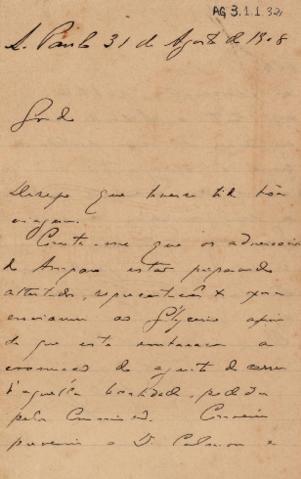 AG 3.1.1.32
S. Paulo 31 de Agosto de 1908
Desejo que tivesse tido bôa
viagem.
Consta-me que os adversarios
de Amparo estão preparando
attestados, representações
enviarem ao Glycerio afim
de que este embarace a
nomeação do agente do correio
d'aquella localidade, pedida
pela Commissão. Convem
prevenir o Dr. Calmon e